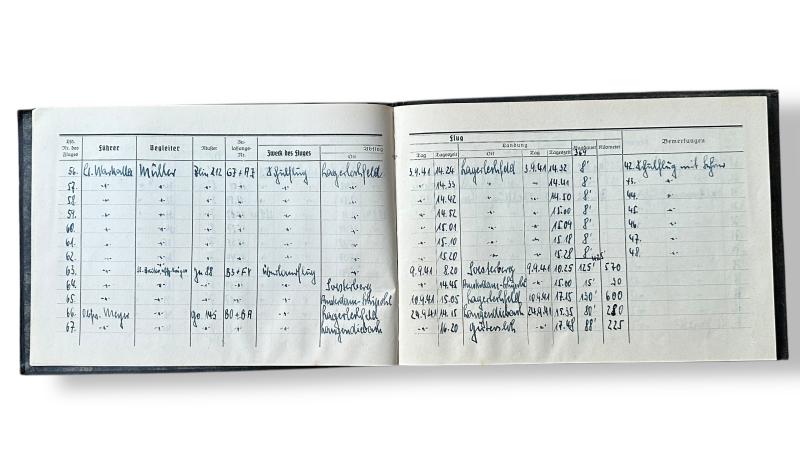 Lfd. Nr. des Fluges Führer Begleiter Muster Zu-lassungs-Nr. Zweck des Fluges Abflug Ort
Flug
Tag Tageszeit Landung Ort Tag Tageszeit Flugdauer Kilometer Bemerkungen
364
56. Müller G7+A7 Schulflug Lagerlechfeld 3.9.41 14.24 Lagerlechfeld 3.9.41 14.32 8' 42. Schulflug mit
57. " " " " " " " 14.33 " " 14.41 8' 43. "
58. " " " " " " " 14.42 " " 14.50 8' 44. "
59. " " " " " " " 14.52 " " 15.00 8' 45. "
60. " " " " " " " 15.01 " " 15.09 8' 46. "
61. " " " " " " " 15.10 " " 15.18 8' 47. "
62. " " " " " " " 15.20 " " 15.28 8' 48. "
63. " Ju 88 B3+FY Überlandflug " 9.9.41 8.20 Soesterberg 9.9.41 10.25 125' 570
64. " " " " " Soesterberg " 14.45 Amsterdam- " 15.00 15' 30
65. " " " " " Amsterdam- 10.9.41 15.05 Lagerlechfeld 10.9.41 17.15 130' 600
66. Meyer Go 145 " Lagerlechfeld 24.9.41 14.15 Langendiebach 24.9.41 15.35 80' 280
67. " " " " Langendiebach " 16.20 Gütersloh " 17.48 88' 225